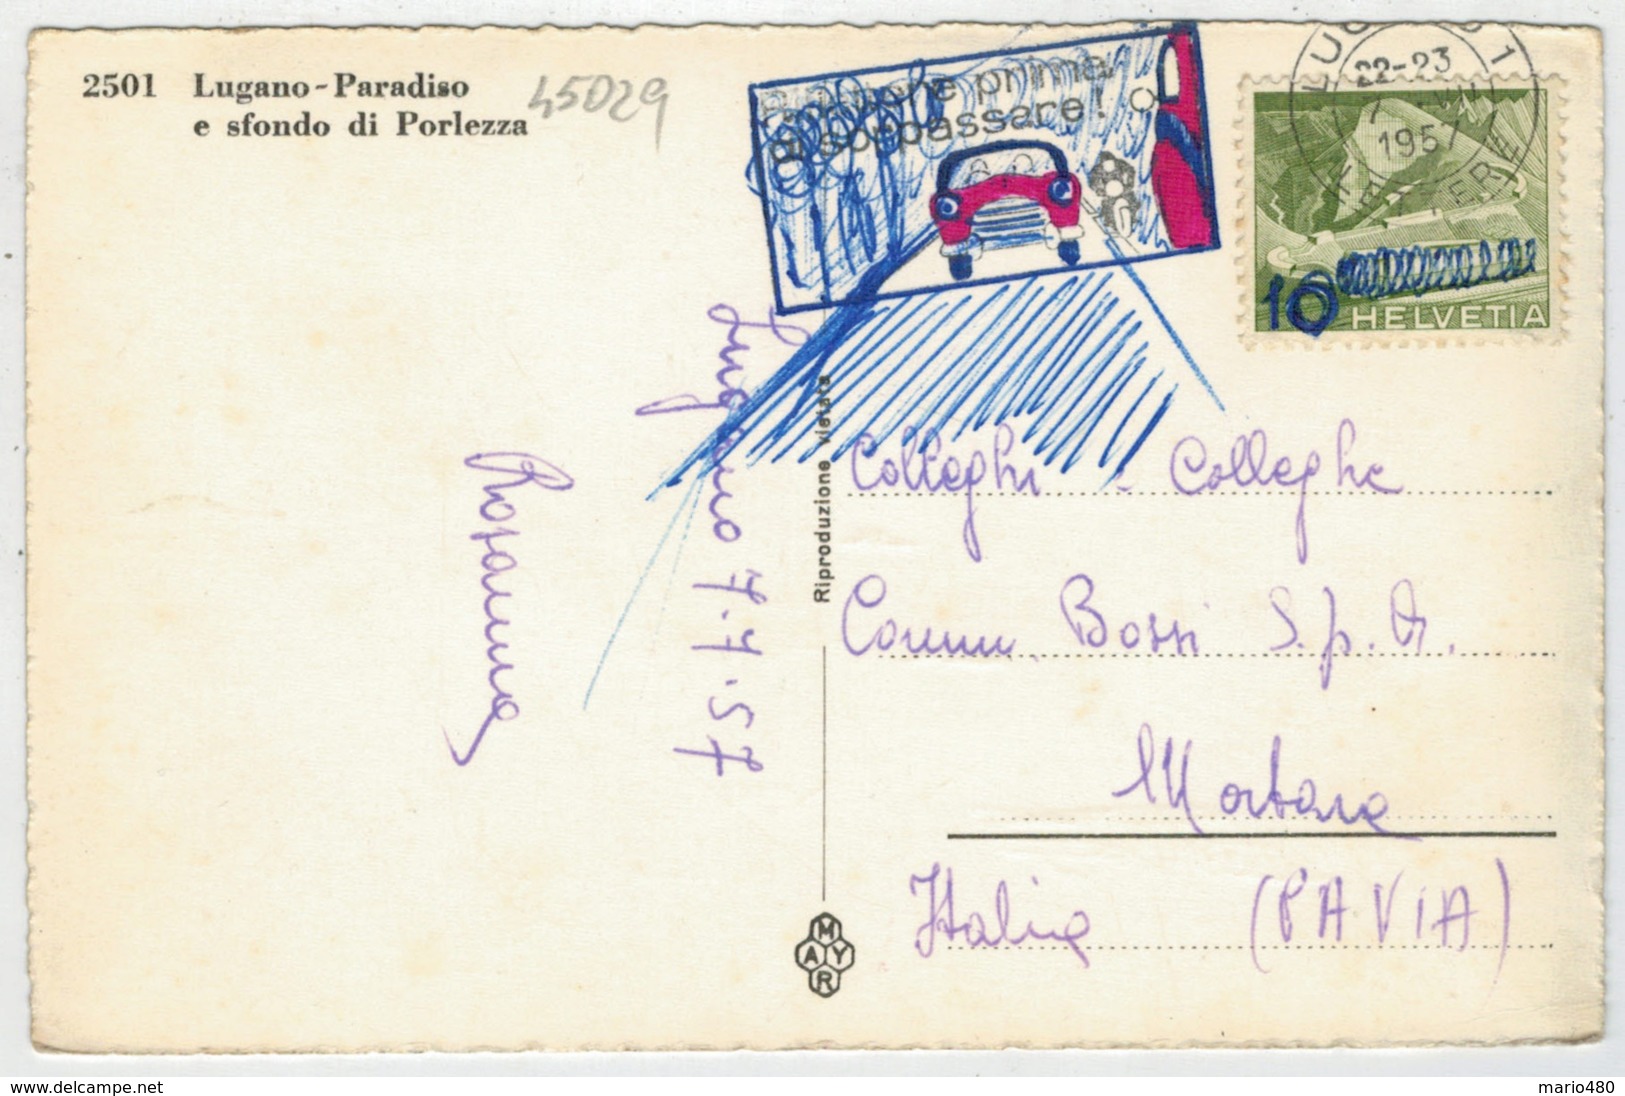 2501 Lugano-Paradiso
e sfondo di Porlezza
45029
prima
di sorpassare!
LUGANO 1
22-23
7. VII
1957
10
HELVETIA
Lugano 7.7.57
Rosanna
Riproduzione vietata
Colleghi - Colleghe
Comm. Bossi S.p.A.
Mortara
Italia (PAVIA)
MAYR
www.delcampe.net
mario480